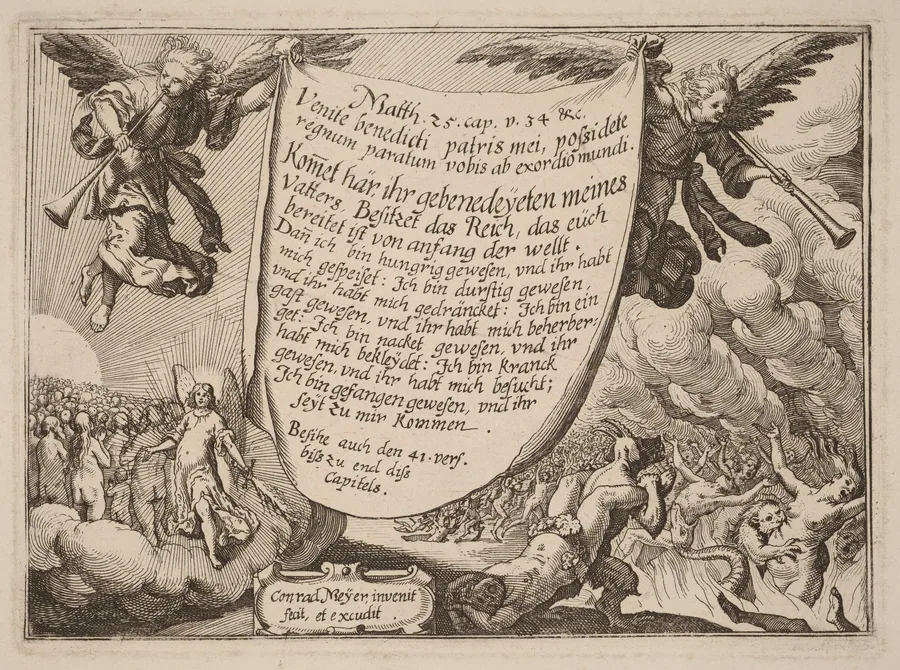 Matth. 25. cap. v. 34 &c.
Venite benedicti patris mei, possidete
regnum paratum vobis ab exordio mundi.
Kom̃et här, ihr gebenedeÿeten meines
Vatters, Besitzet das Reich, das eüch
bereitet ist von anfang der wellt.
Dañ ich bin hungrig gewesen, vnd ihr habt
mich gespeiset: Ich bin durstig gewesen,
vnd ihr habt mich gedräncket: Ich bin ein
gast gewesen, vnd ihr habt mich beherber-
get: Ich bin nacket gewesen, vnd ihr
habt mich bekleÿdet: Ich bin kranck
gewesen, vnd ihr habt mich besucht;
Ich bin gefangen gewesen, vnd ihr
seÿt zu mir kommen.
Besihe auch den 41. vers.
biß zu end diß
Capitels.
Conrad Meÿer invenit
fecit, et excudit